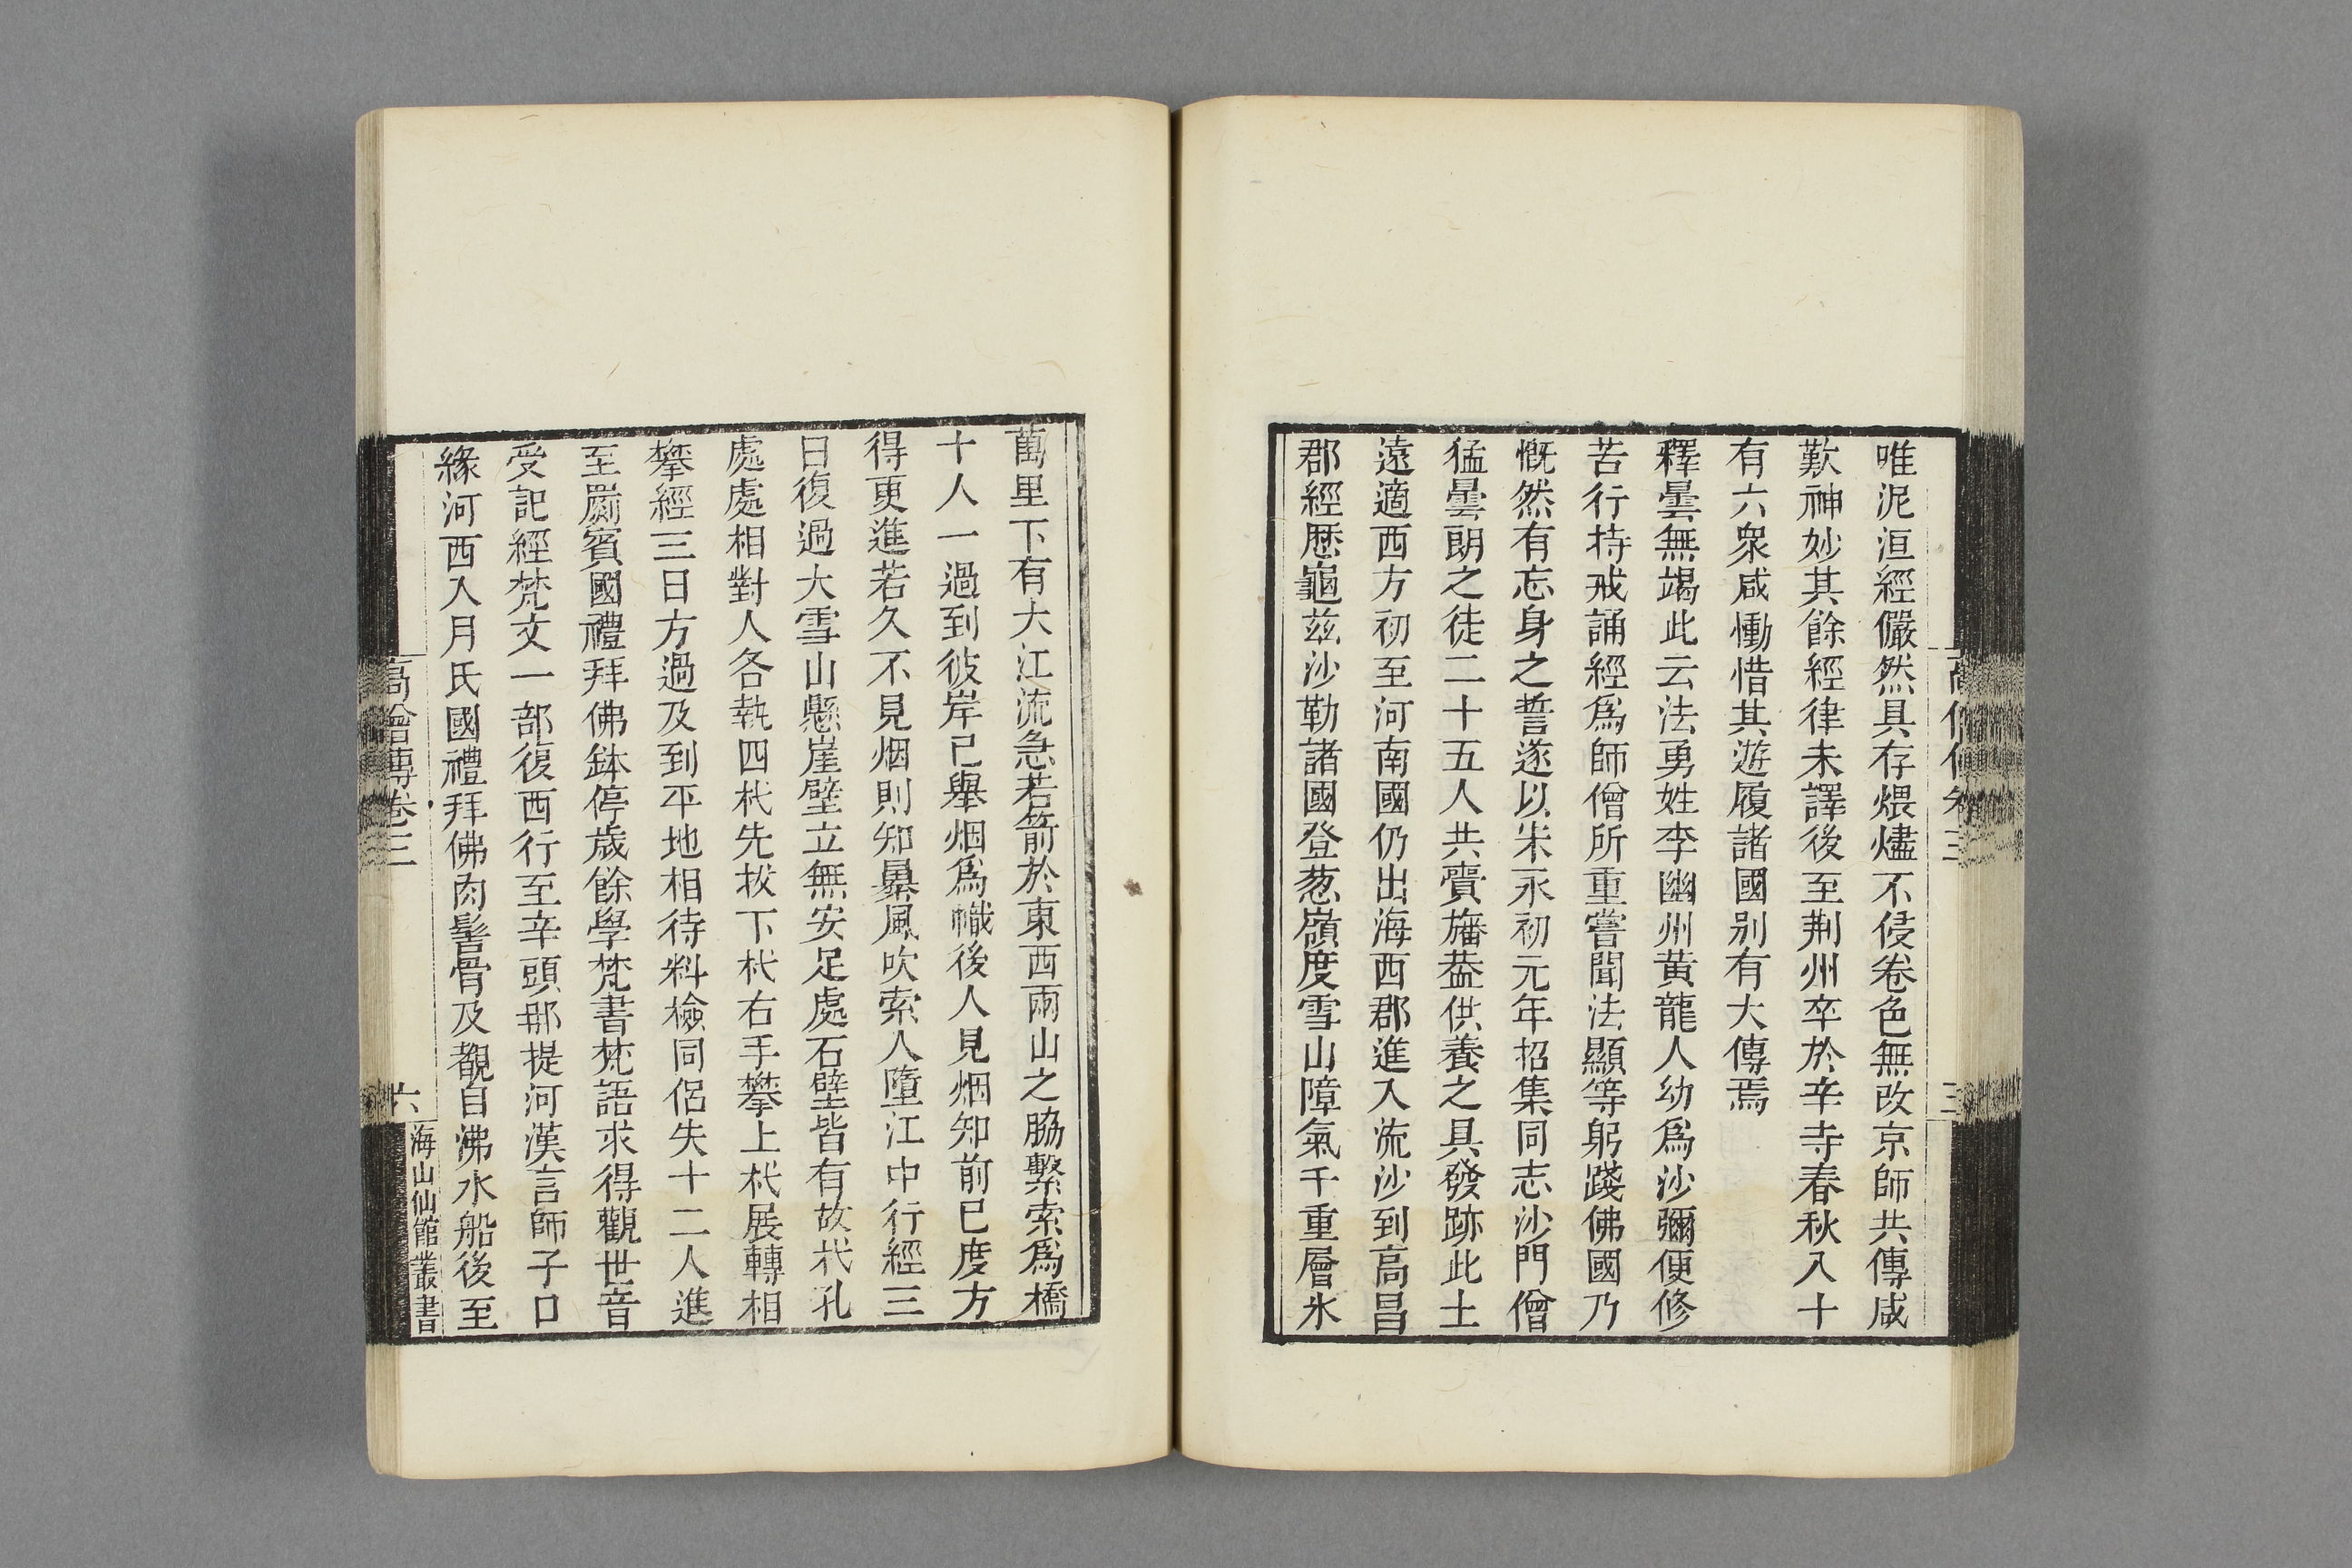 唯泥洹經儼然具存煨燼不侵卷色無改京師共傳咸
歎神妙其餘經律未譯後至荆州卒於辛寺春秋八十
有六衆咸慟惜其遊履諸國别有大傳焉
釋曇無竭此云法勇姓李幽州黄龍人幼爲沙彌便修
苦行持戒誦經爲師僧所重嘗聞法顯等躬踐佛國乃
慨然有忘身之誓遂以朱永初元年招集同志沙門僧
猛曇朗之徒二十五人共賷旛葢供養之具發跡此土
遠適西方初至河南國仍出海西郡進入流沙到高昌
郡經歷龜兹沙勒諸國登葱嶺度雪山障氣千重層氷
萬里下有大江流急若箭於東西兩山之脇繫索爲橋
十人一過到彼岸已舉烟爲幟後人見烟知前已度方
得更進若久不見烟則知暴風吹索人墮江中行經三
日復過大雪山懸崖壁立無安足處石壁皆有故杙孔
處處相對人各執四杙先拔下杙右手攀上杙展轉相
攀經三日方過及到平地相待料檢同侶失十二人進
至罽賓國禮拜佛鉢停歲餘學梵書梵語求得觀世音
受記經梵文一部復西行至辛頭那提河漢言師子口
緣河西入月氏國禮拜佛肉髻骨及覩自沸水船後至
高僧傳卷三
六
海山仙館叢書